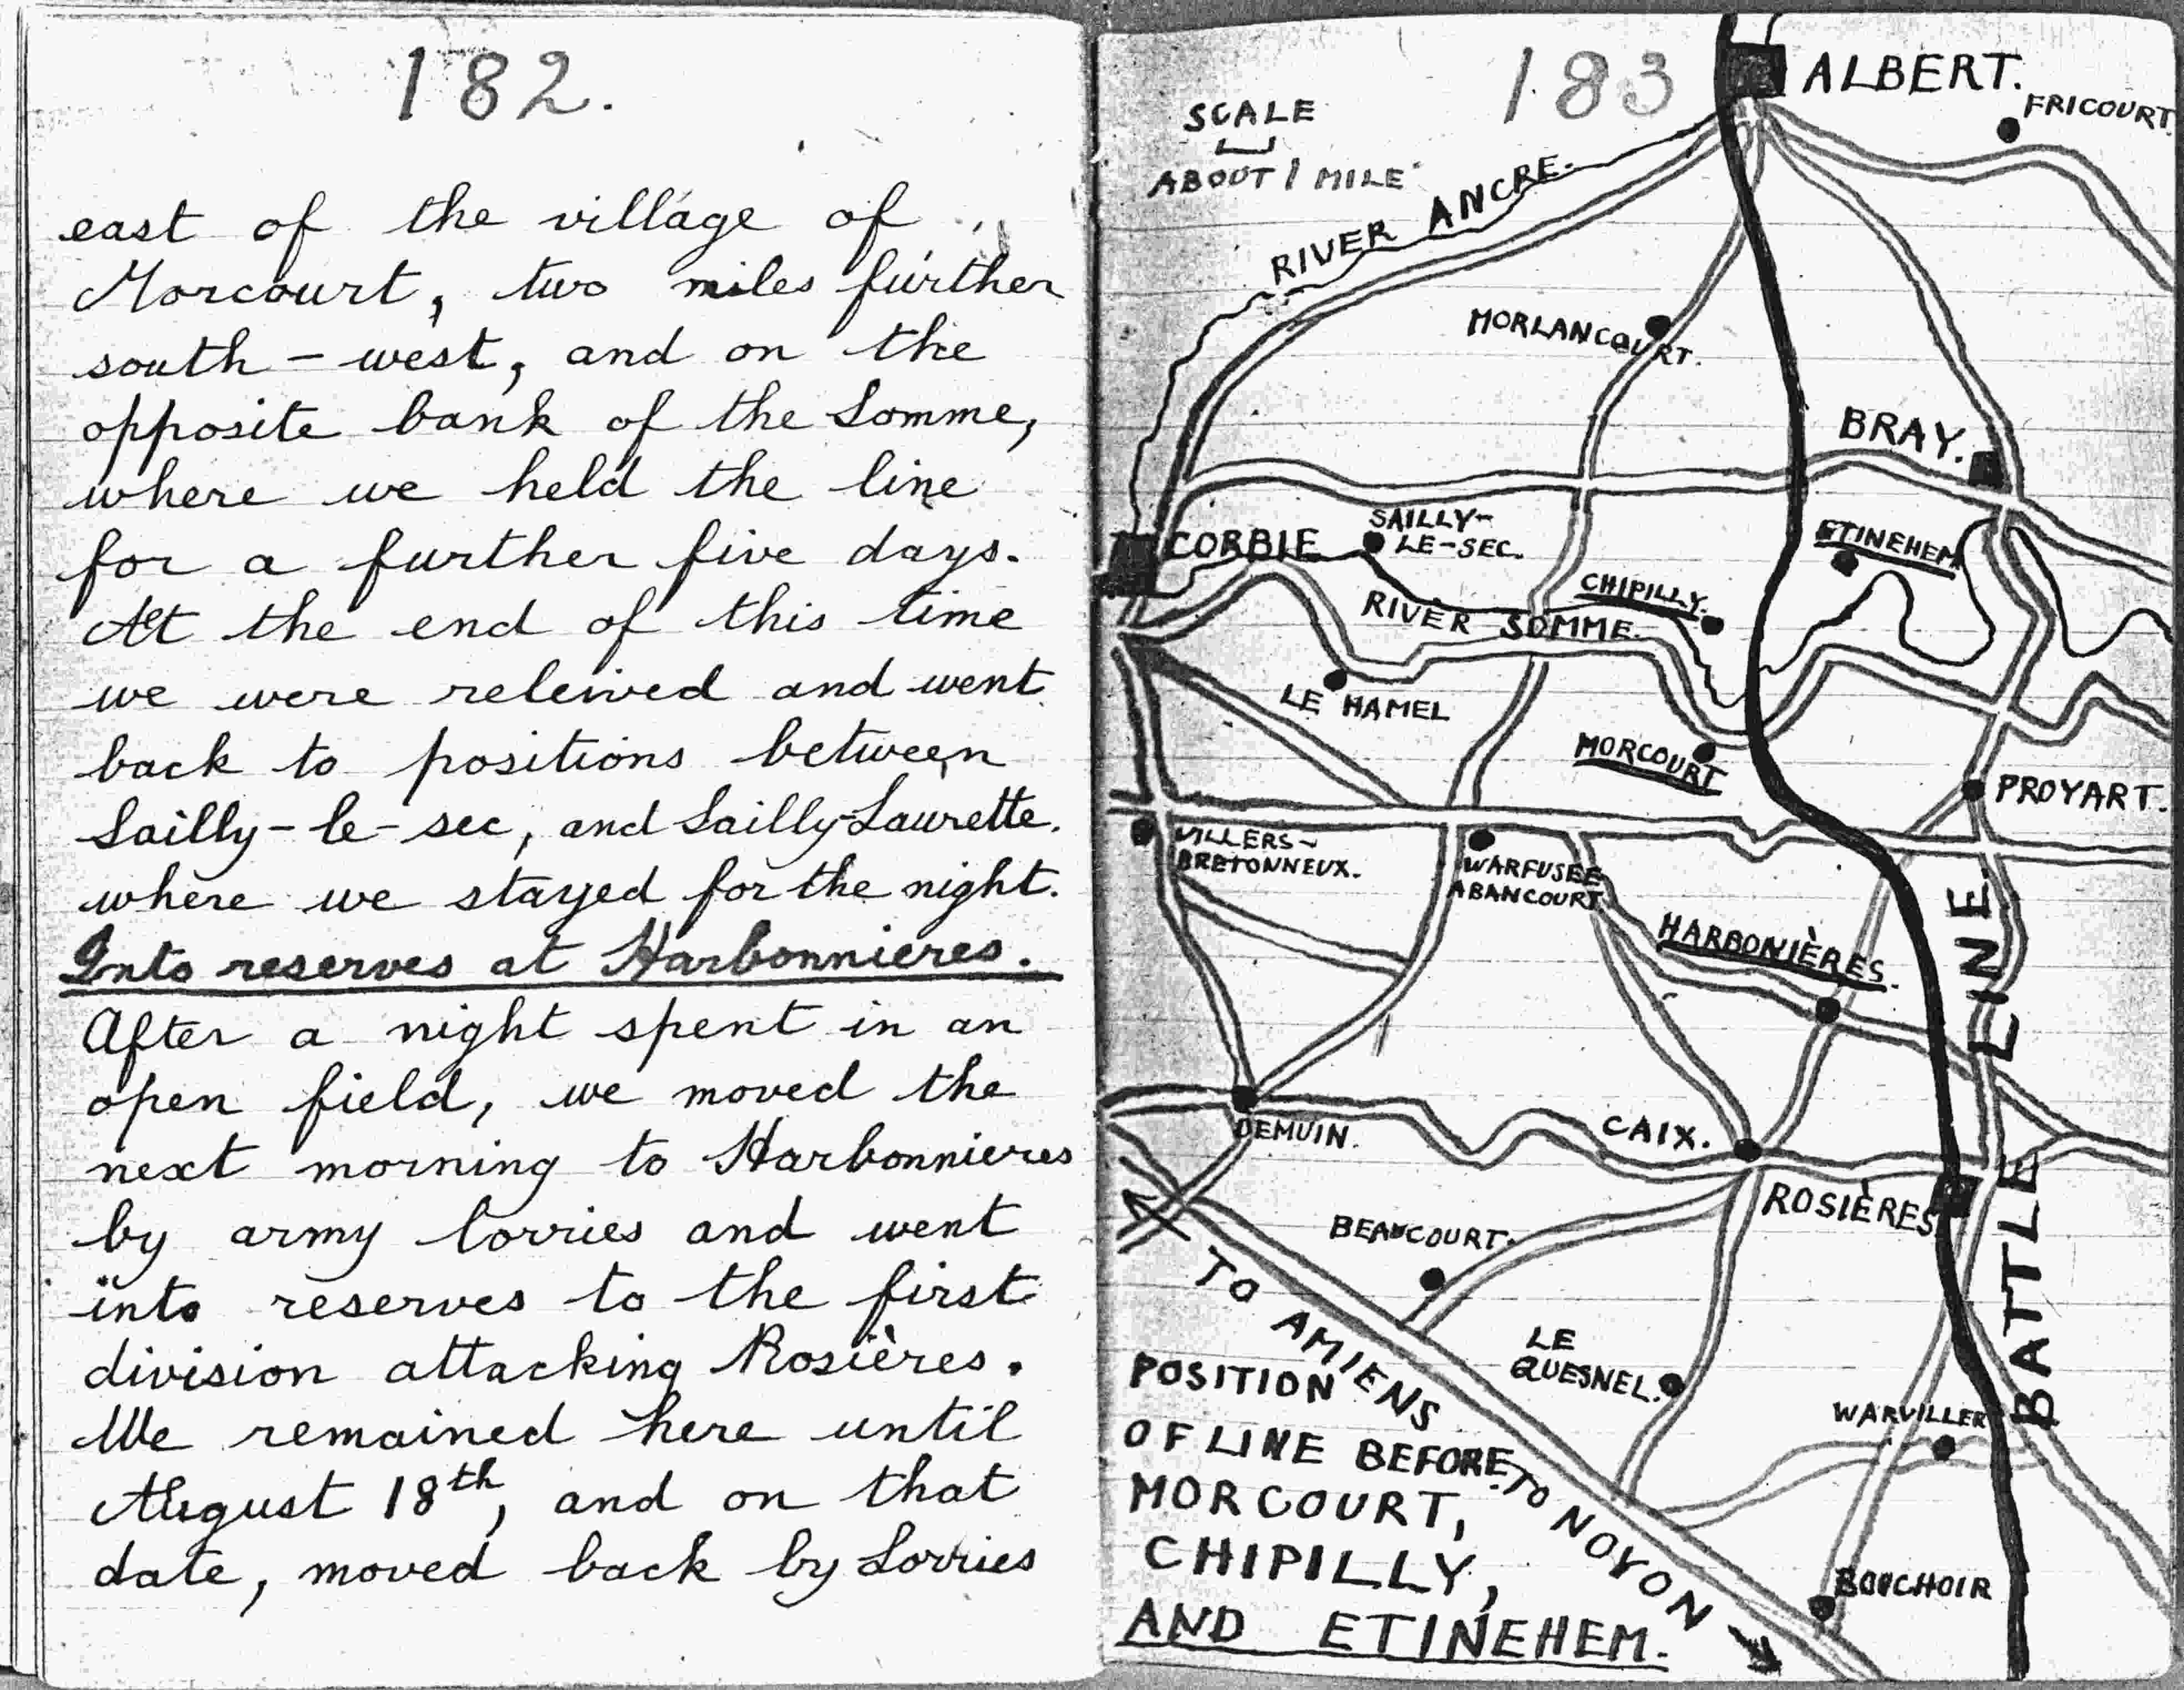 182.
east of the village of
Morcourt, two miles further
south-west, and on the
opposite bank of the Somme,
where we held the line
for a further five days.
At the end of this time
we were releived and went
back to positions between
Sailly-le-sec, and Sailly-Laurette.
where we stayed for the night.
Into reserves at Harbonnieres.
After a night spent in an
open field, we moved the
next morning to Harbonnieres
by army lorries and went
into reserves to the first
division attacking Rosières.
We remained here until
August 18th, and on that
date, moved back by Lorries
183
ALBERT.
FRICOURT.
SCALE
ABOUT 1 MILE
RIVER ANCRE.
MORLANCOURT.
BRAY.
CORBIE
SAILLY-
LE-SEC.
ETINEHEM
CHIPILLY.
RIVER SOMME.
LE HAMEL
MORCOURT
PROYART.
VILLERS-
BRETONNEUX.
WARFUSEE
ABANCOURT
HARBONIÈRES.
BATTLE LINE.
DEMUIN.
CAIX.
ROSIÈRES
BEAUCOURT.
TO AMIENS
LE
QUESNEL.
WARVILLER
TO NOYON
BOUCHOIR
POSITION
OF LINE BEFORE
MORCOURT,
CHIPILLY,
AND ETINEHEM.